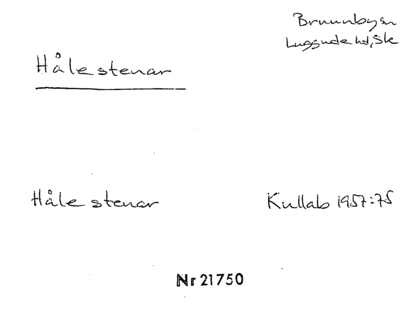 Brunnby sn
Luggude hd, Sk
Hålestenar
Hålestenar
Kullab 1957:75
Nr 21750